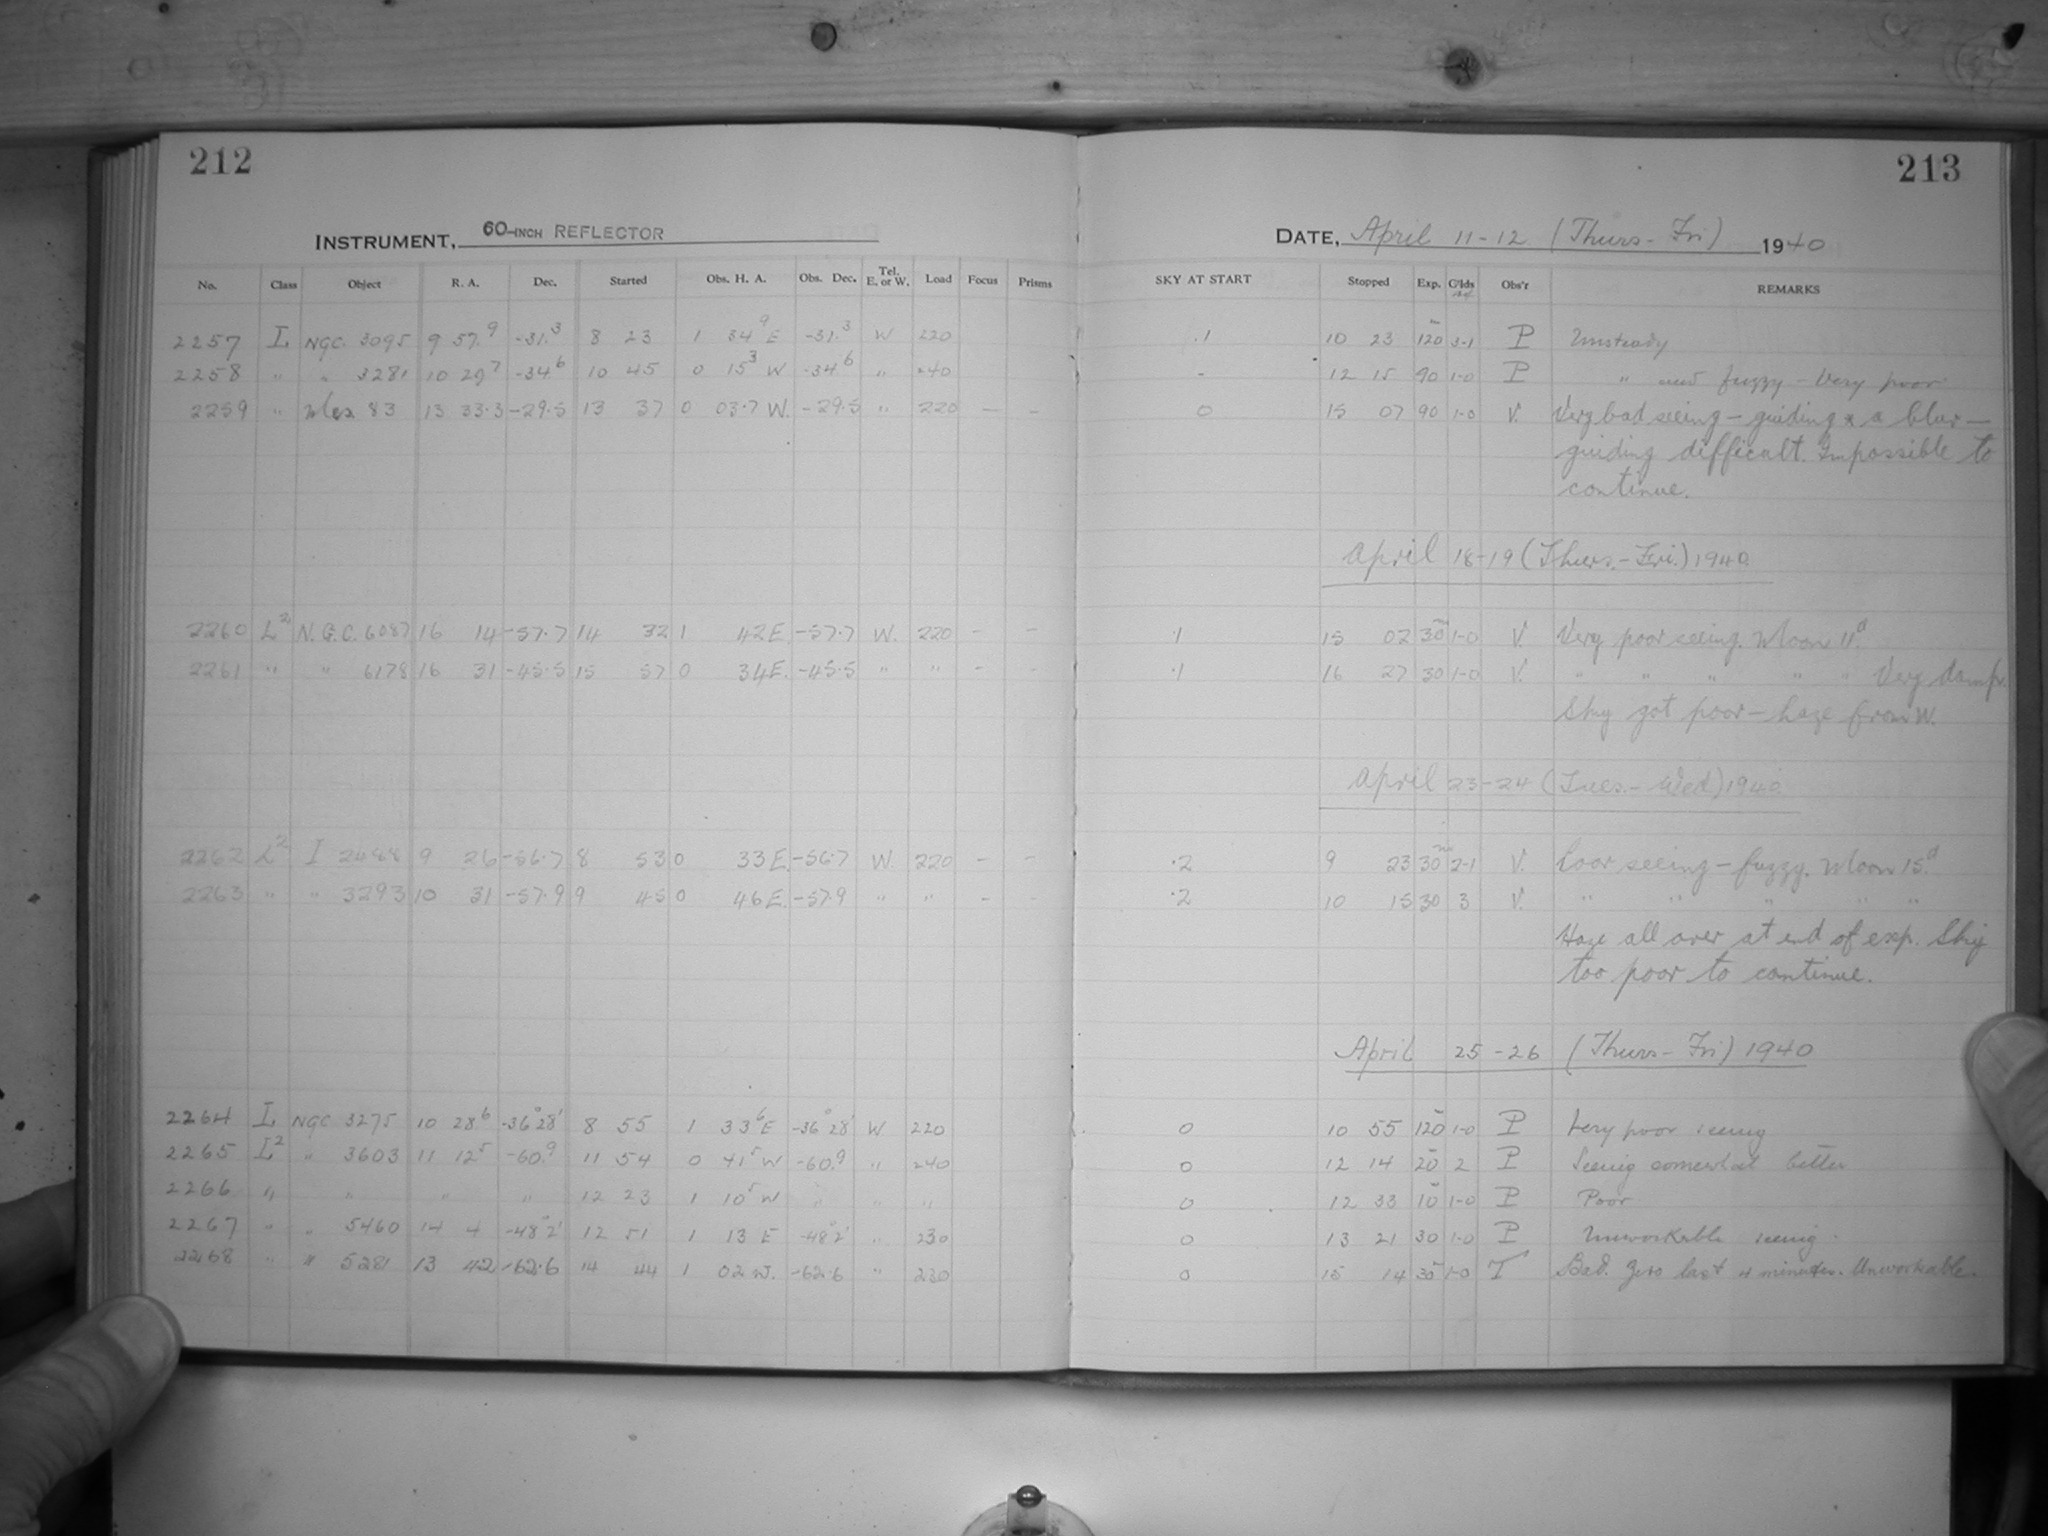 212
213
INSTRUMENT, 60-INCH REFLECTOR
DATE, April 11-12 (Thurs - Fri) 1940
No. Class Object R. A. Dec. Started Obs. H. A. Obs. Dec. Tel. E. or W. Load Focus Prisms SKY AT START Stopped Exp. G'lds Obs'r REMARKS
2257 L NGC. 3095 9 57.9 -31.3 8 23 1 34.9 E -31.3 W 220 .1 10 23 120m 3-1 P Unsteady
2258 " " 3281 10 29.7 -34.6 10 45 0 15.3 W -34.6 " 240 - 12 15 90 1-0 P " and fuzzy - Very poor
2259 " Mes 83 13 33.3 -29.5 13 37 0 03.7 W. -29.5 " 220 - - 0 15 07 90 1-0 V. Very bad seeing - guiding * a blur -
guiding difficult. Impossible to
continue.
April 18-19 (Thurs.-Fri.) 1940
2260 L2 N.G.C. 6087 16 14 -57.7 14 32 1 42 E. -57.7 W. 220 - - .1 15 02 30m 1-0 V. Very poor seeing. Moon 11d.
2261 " " 6178 16 31 -45.5 15 57 0 34 E. -45.5 " " - - .1 16 27 30 1-0 V. " " " " " Very damp.
Sky got poor - haze from W.
April 23-24 (Tues.-Wed) 1940
2262 L2 I 2488 9 26 -56.7 8 53 0 33 E. -56.7 W. 220 - - .2 9 23 30m 2-1 V. Poor seeing - fuzzy. Moon 15d.
2263 " " 3293 10 31 -57.9 9 45 0 46 E. -57.9 " " - - .2 10 15 30 3 V. " " " " "
Haze all over at end of exp. Sky
too poor to continue.
April 25-26 (Thurs - Fri) 1940
2264 L NGC 3275 10 28.6 -36°28' 8 55 1 33.6 E -36°28' W 220 0 10 55 120m 1-0 P Very poor seeing
2265 L2 " 3603 11 12.5 -60.9 11 54 0 41.5 W -60.9 " 240 0 12 14 20m 2 P Seeing somewhat better
2266 " " " " " 12 23 1 10.5 W " " " 0 12 33 10m 1-0 P Poor
2267 " " 5460 14 4 -48°2' 12 51 1 13 E -48°2' " 230 0 13 21 30 1-0 P Unworkable seeing.
2268 " " 5281 13 42 -62.6 14 44 1 02 W. -62.6 " 230 0 15 14 30m 1-0 T Bad. Zero last 4 minutes. Unworkable.